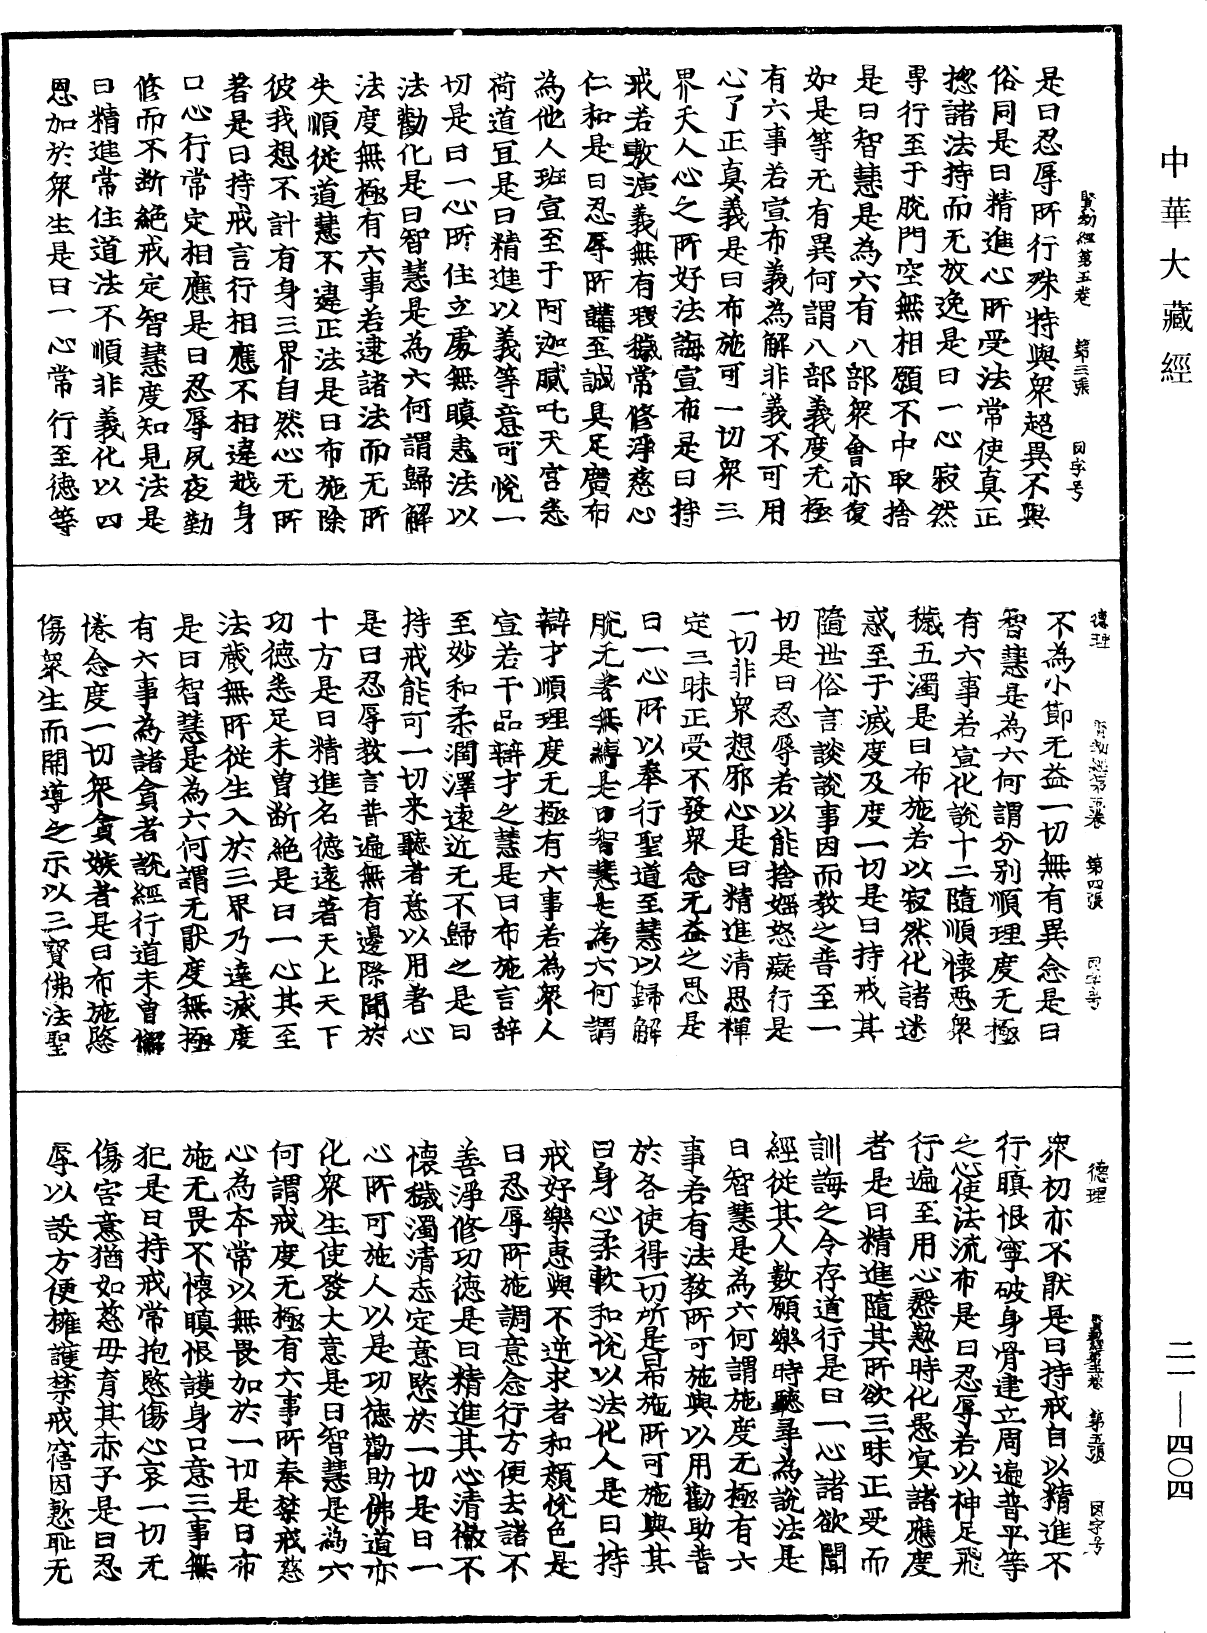 中華大藏經
賢劫經第五卷 第三張 因字号
是曰忍辱所行殊特與衆超異不與
俗同是曰精進心所受法常使真正
揔諸法持而无放逸是曰一心寂然
專行至于脫門空無相願不中取捨
是曰智慧是為六有八部衆會亦復
如是等无有異何謂八部義度无極
有六事若宣布義為解非義不可用
心了正真義是曰布施可一切衆三
界天人心之所好法誨宣布是曰持
戒若敷演義無有瑕穢常修淨慈心
仁和是曰忍辱所講至誠具足廣布
為他人班宣至于阿迦膩吒天宮悉
荷道宜是曰精進以義等意可悅一
切是曰一心所住立處無瞋恚法以
法勸化是曰智慧是為六何謂歸解
法度無極有六事若逮諸法而无所
失順從道慧不違正法是曰布施除
彼我想不計有身三界自然心无所
著是曰持戒言行相應不相違越身
口心行常定相應是曰忍辱夙夜勤
修而不断絕戒定智慧度知見法是
曰精進常住道法不順非義化以四
恩加於衆生是曰一心常行至德等
德理 賢劫經第五卷 第四張 因字号
不為小節无益一切無有異念是曰
智慧是為六何謂分别順理度无極
有六事若宣化說十二隨順懷惡衆
穢五濁是曰布施若以寂然化諸迷
惑至于滅度及度一切是曰持戒其
隨世俗言談說事因而教之普至一
切是曰忍辱若以能捨婬怒癡行是
一切非衆想邪心是曰精進清思禪
定三昧正受不發衆念无益之思是
曰一心所以奉行聖道至慧以歸解
脫无著無縛是曰智慧是為六何謂
辯才順理度无極有六事若為衆人
宣若干品辯才之慧是曰布施言辞
至妙和柔潤澤遠近无不歸之是曰
持戒能可一切来聽者意以用者心
是曰忍辱教言普遍無有邊際聞於
十方是曰精進名德遠著天上天下
功德悉足未曾断絕是曰一心其至
法藏無所從生入於三界乃達滅度
是曰智慧是為六何謂无猒度無極
有六事為諸貪者說經行道未曾懈
惓念度一切衆貪嫉者是曰布施愍
傷衆生而開導之示以三寳佛法聖
德理 賢劫經第五卷 第五張 因字号
衆初亦不猒是曰持戒自以精進不
行瞋恨寧破身骨建立周遍普平等
之心使法流布是曰忍辱若以神足飛
行遍至用心慇懃時化愚冥諸應度
者是曰精進隨其所欲三昧正受而
訓誨之令存道行是曰一心諸欲聞
經從其人數願樂時聽尋為說法是
曰智慧是為六何謂施度无極有六
事若有法教所可施與以用勸助普
於各使得一切所是曰布施所可施與其
曰身心柔軟和悅以法化人是曰持
戒好樂惠與不逆求者和顔悅色是
曰忍辱所施調意念行方便去諸不
善淨修功德是曰精進其心清徹不
懷穢濁清志定意愍於一切是曰一
心所可施人以是功德勸助佛道亦
化衆生使發大意是曰智慧是為六
何謂戒度无極有六事所奉禁戒慈
心為本常以無畏加於一切是曰布
施无畏不懷瞋恨護身口意三事無
犯是曰持戒常抱愍傷心哀一切无
傷害意猶如慈母育其赤子是曰忍
辱以設方便擁護禁戒寤因慙耻无
二一—四〇四